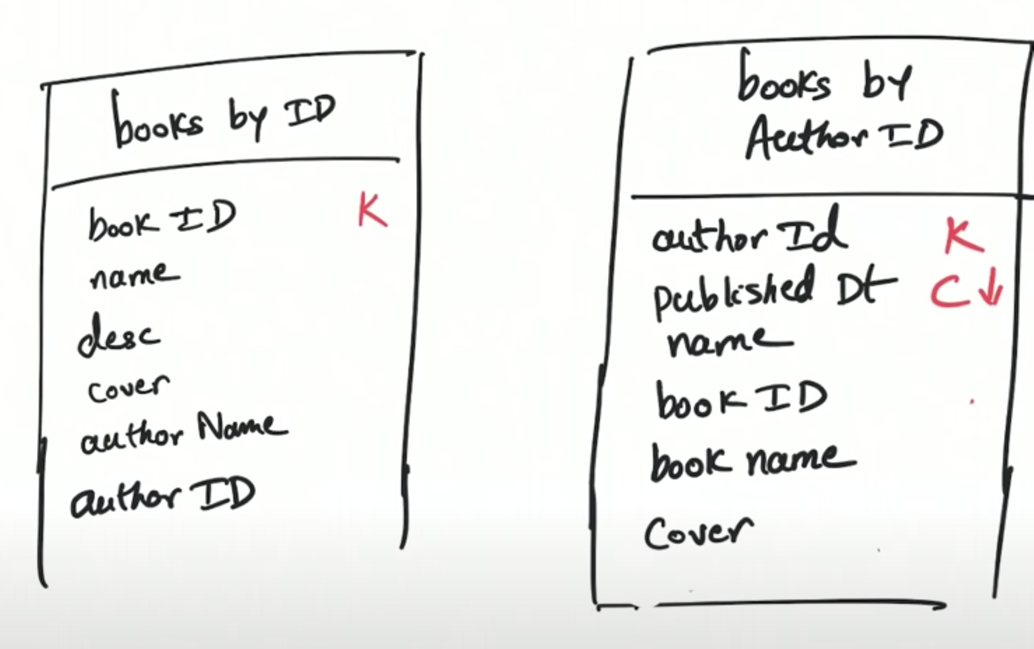 books by ID
book ID K
name
desc
cover
author Name
author ID
books by
Author ID
author Id K
published Dt C ↓
name
book ID
book name
Cover